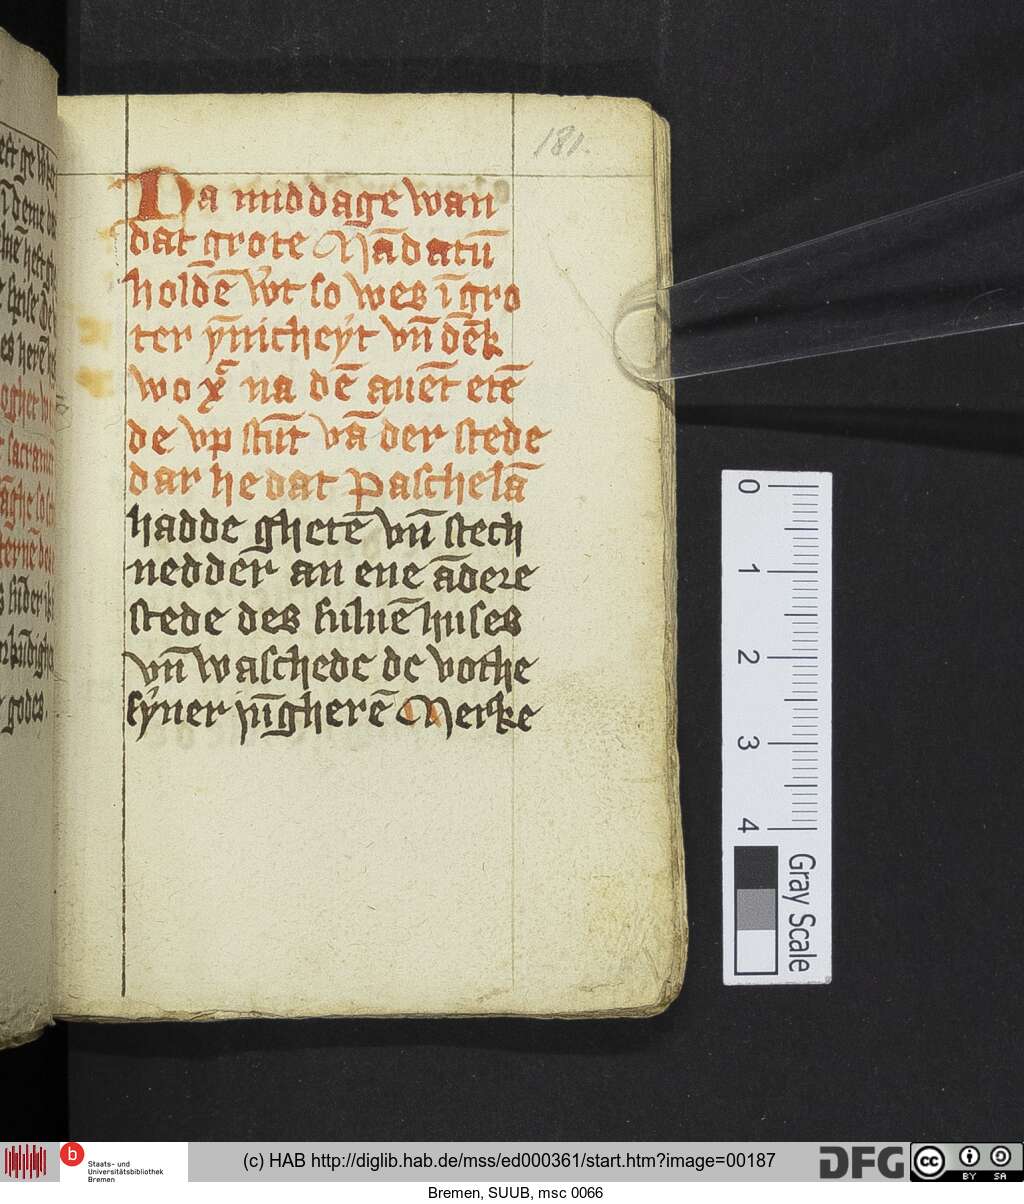 181.
Na middage wan
dat grote Mādatū
holdē wt so wes ī gro
ter ẏnnicheẏt vn̄ dēk
wo xp̄ na dē auēt etē
de vp stūt vā der stede
dar he dat Paschelā
hadde ghetē vn̄ stech
nedder an ene ādere
stede des suluē huses
vn̄ waschede de vothe
sẏner iūgherē Merke
0
1
2
3
4
Gray Scale
b Staats- und
Universitätsbibliothek
Bremen
(c) HAB http://diglib.hab.de/mss/ed000361/start.htm?image=00187
DFG
cc BY SA
Bremen, SUUB, msc 0066